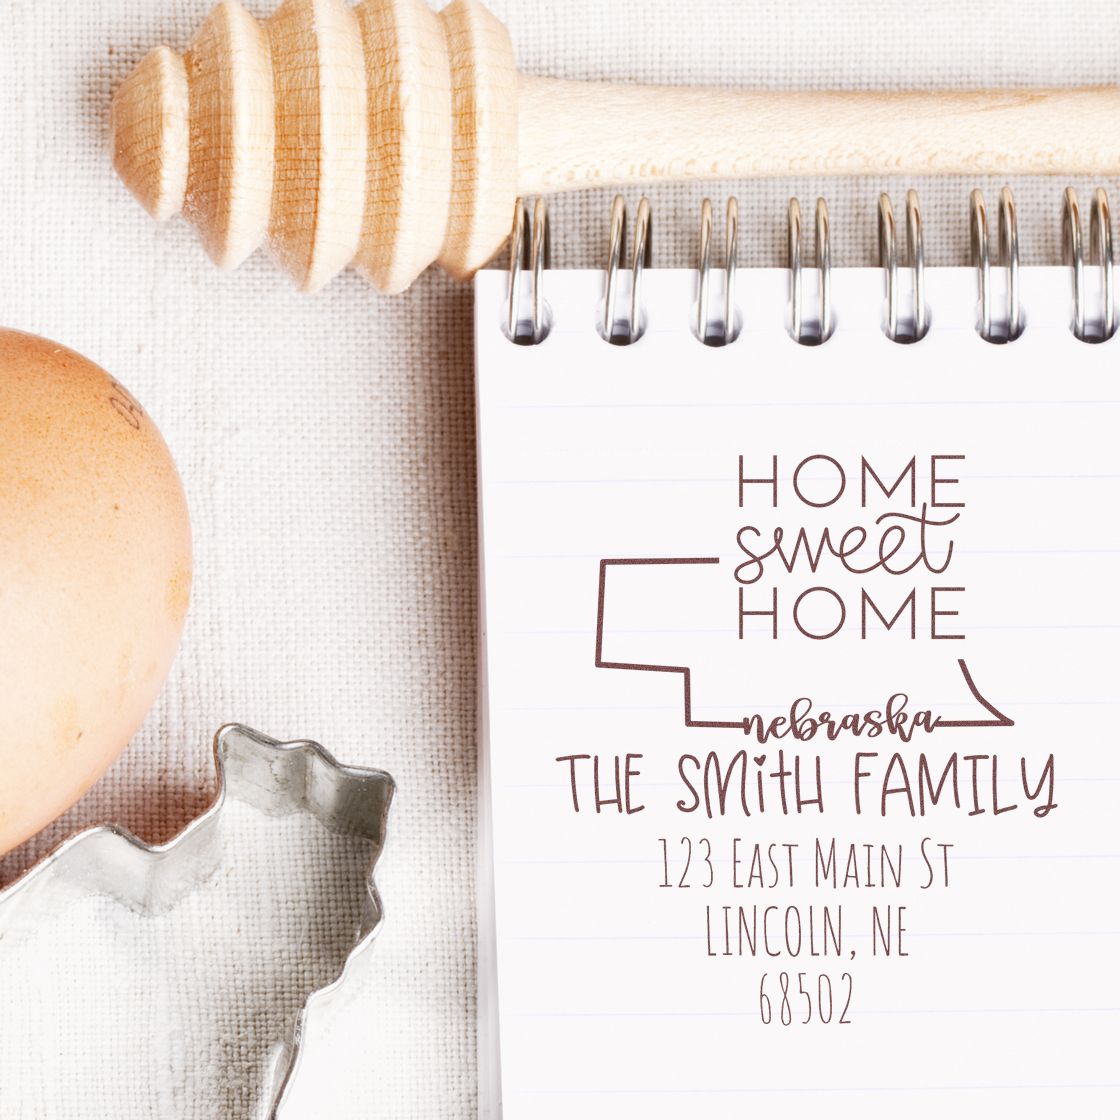 HOME
sweet
HOME
nebraska
THE SMiTH FAMILY
123 East Main St
LINCOLN, NE
68502